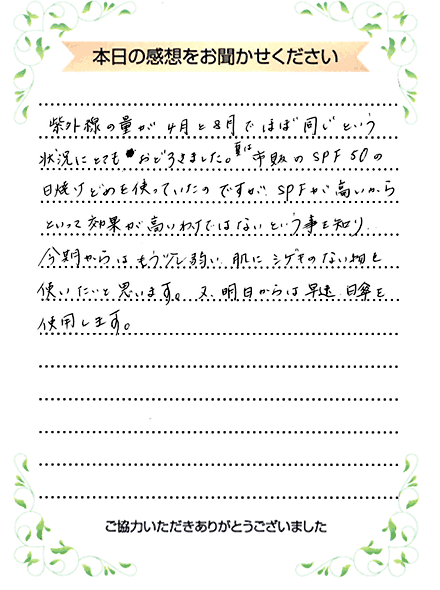 本日の感想をお聞かせください
紫外線の量が4月と8月でほぼ同じという
状況にとてもおどろきました。夏は市販のSPF50の
日焼けどめを使っていたのですが、SPFが高いから
といって効果が高いわけではないという事を知り、
今期からはもう少し弱い、肌にシゲキのない物を
使いたいと思います。又、明日からは早速、日傘を
使用します。
ご協力いただきありがとうございました